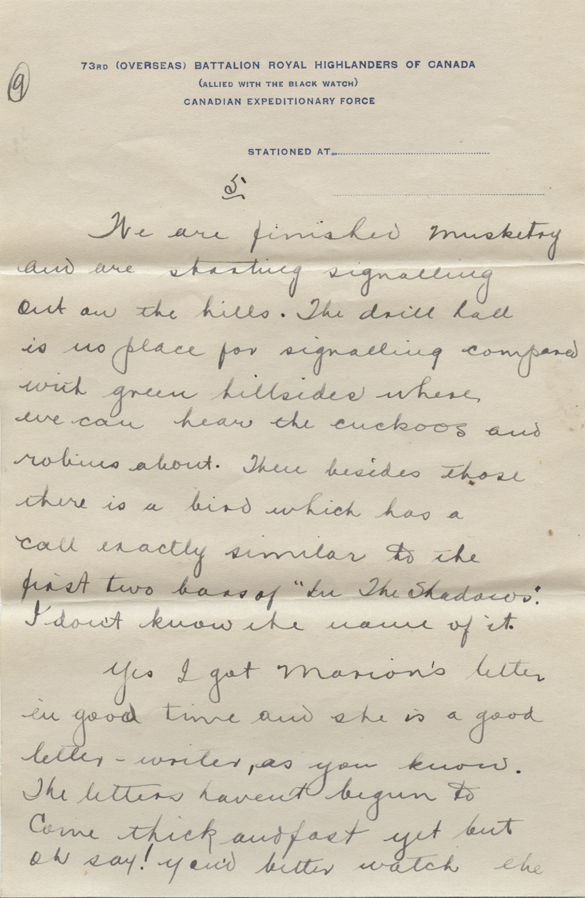 73RD (OVERSEAS) BATTALION ROYAL HIGHLANDERS OF CANADA
(ALLIED WITH THE BLACK WATCH)
CANADIAN EXPEDITIONARY FORCE
9
STATIONED AT
5
We are finished musketry
and are starting signalling
out on the hills. The drill hall
is no place for signalling compared
with green hillsides where
we can hear the cuckoos and
robins about. Then besides those
there is a bird which has a
call exactly similar to the
first two bars of "In The Shadows".
I don't know the name of it.
Yes I got Marion's letter
in good time and she is a good
letter-writer, as you know.
The letters havent begun to
come thick and fast yet but
oh say! you'd better watch the